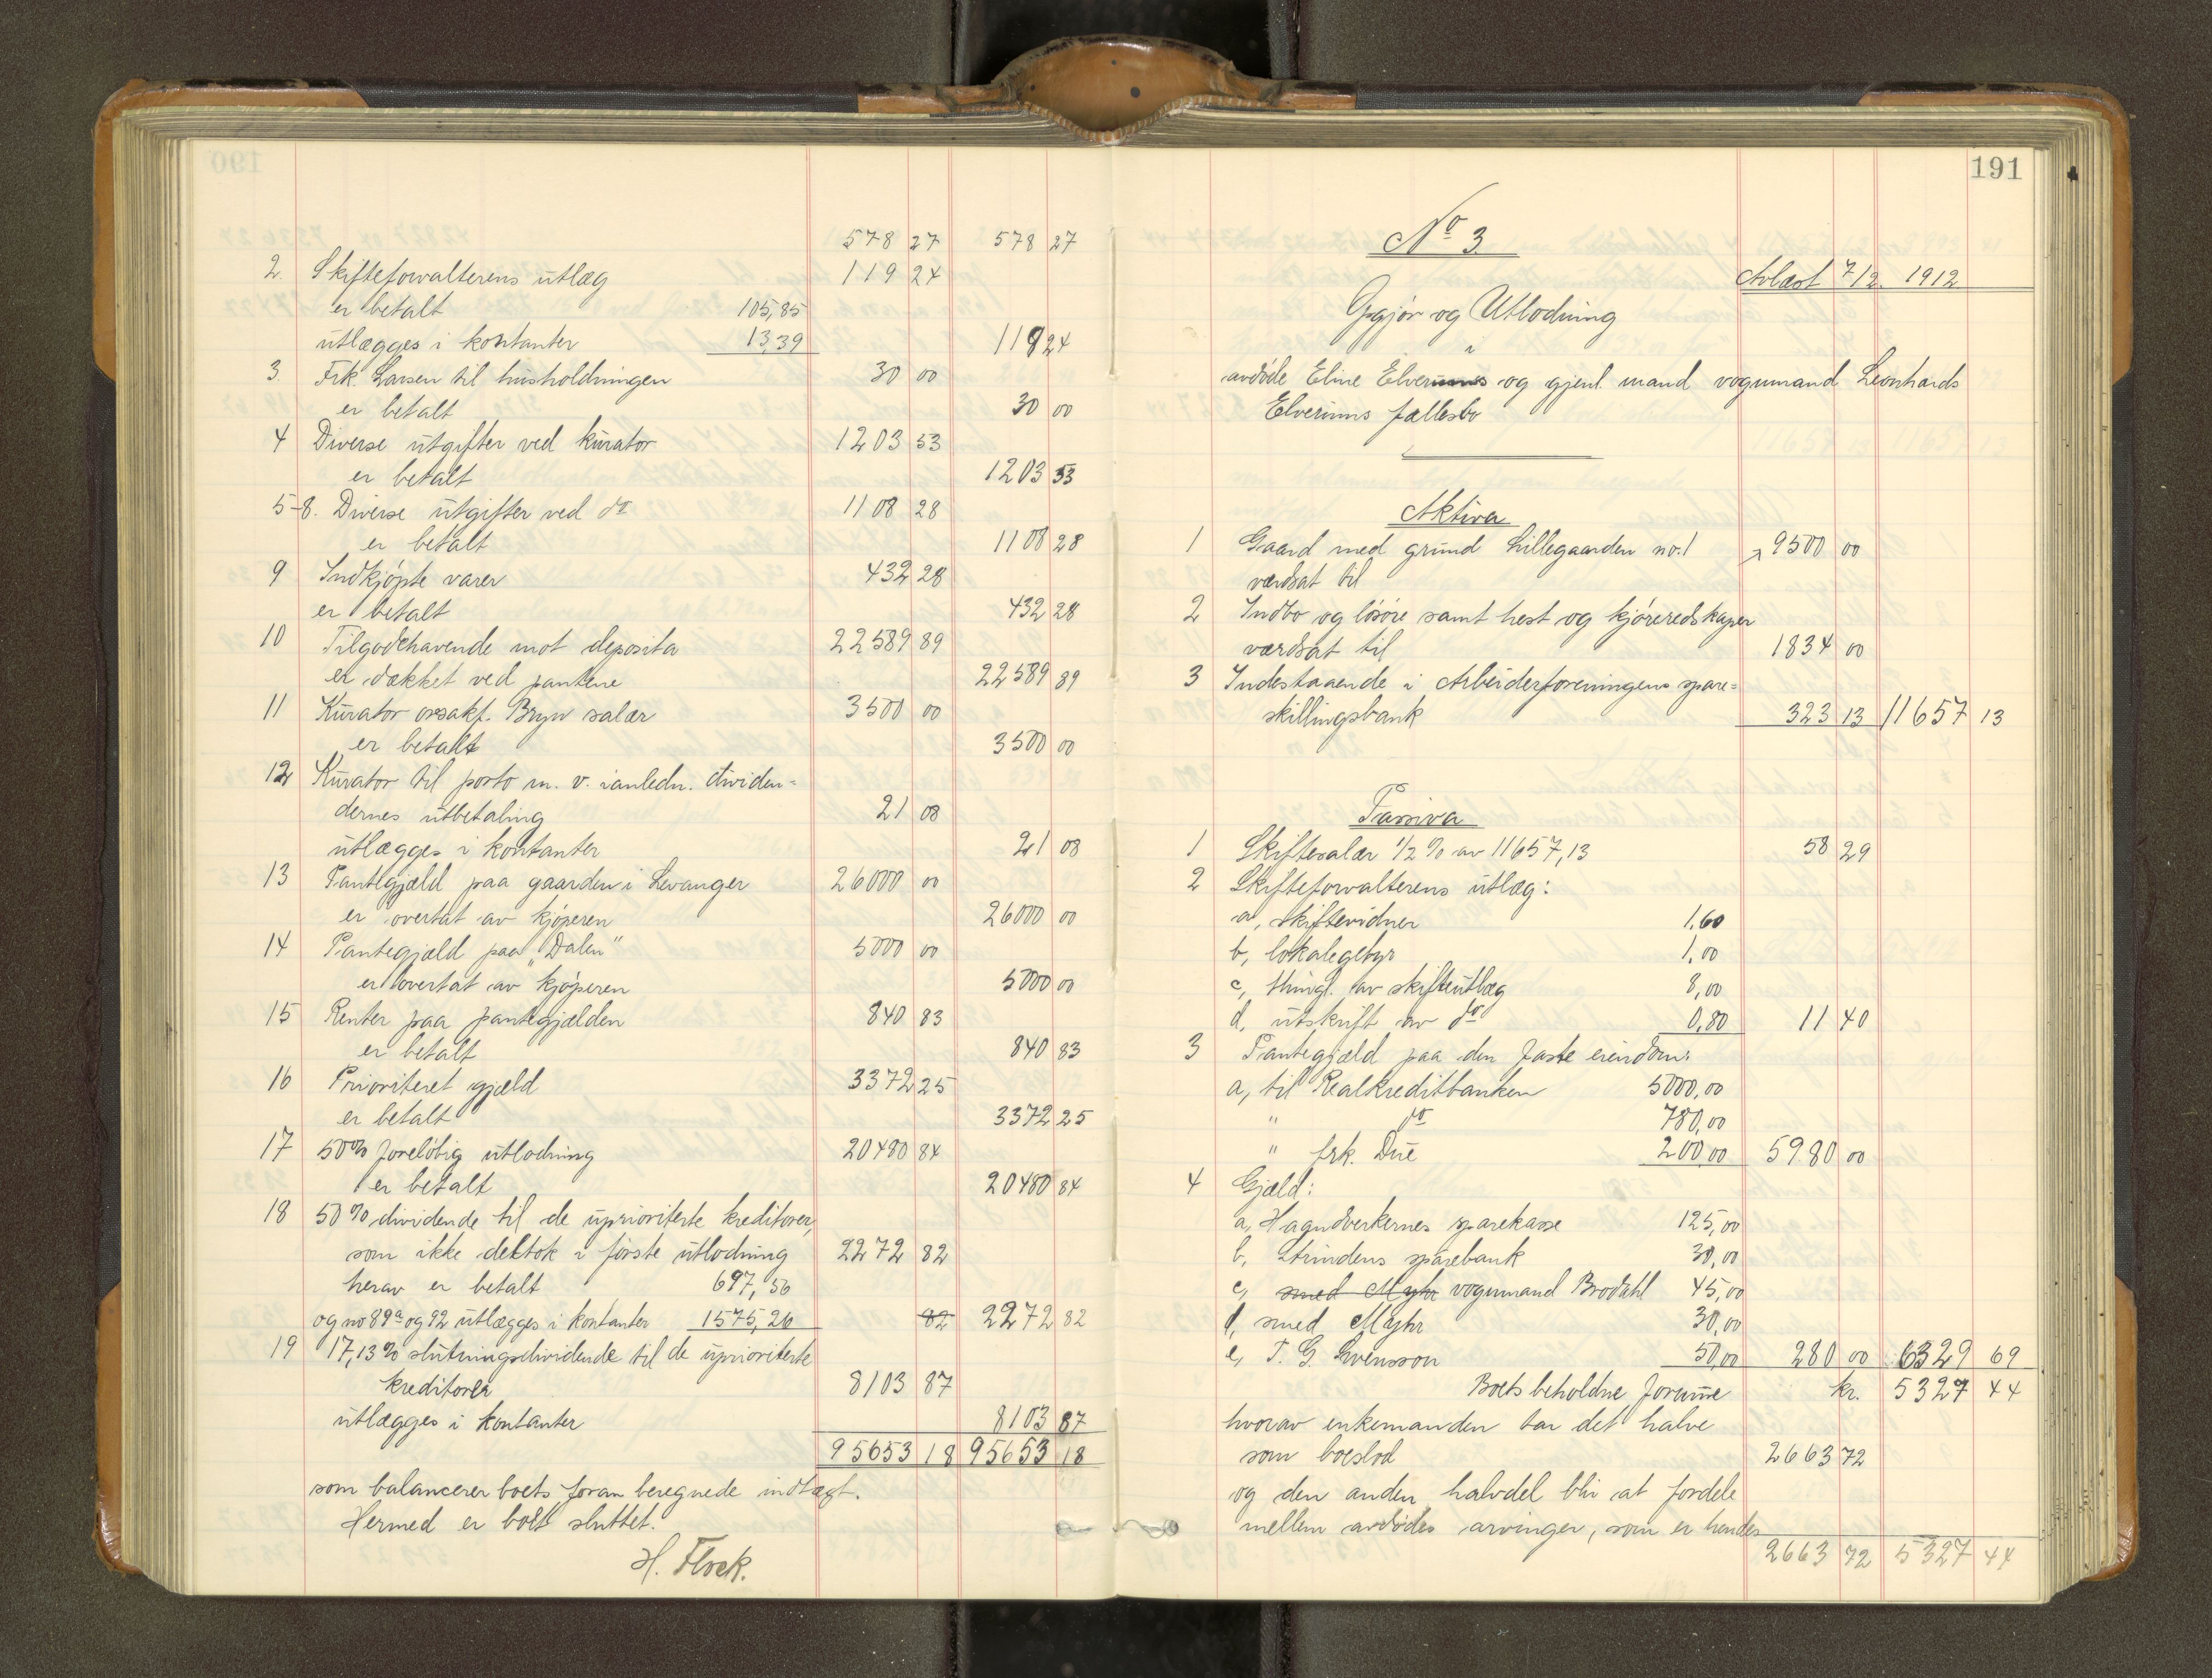 190
578 27 578 27
2. Skifteforvalterens utlæg 119 24
er betalt 105,85
utlægges i kontanter 13,39 119 24
3. Frk. Larsen til husholdningen 30 00
er betalt 30 00
4 Diverse utgifter ved kurator 1203 53
er betalt 1203 53
5-8. Diverse utgifter ved do 1108 28
er betalt 1108 28
9 Indkjøpte varer 432 28
er betalt 432 28
10 Tilgodehavende mot deposita 22589 89
er dækket ved pantene 22589 89
11 Kurator orsakf. Bryn salær 3500 00
er betalt 3500 00
12 Kurator til porto m. v. i anledn. dividen=
dernes utbetaling 21 08
utlægges i kontanter 21 08
13 Pantegjæld paa gaarden i Levanger 26000 00
er overtat av kjøperen 26000 00
14 Pantegjæld paa "Dalen" 5000 00
er overtat av kjøperen 5000 00
15 Renter paa pantegjælden 840 83
er betalt 840 83
16 Prioriteret gjæld 3372 25
er betalt 3372 25
17 50% foreløbig utlodning 20480 84
er betalt 20480 84
18 50% dividende til de uprioriterte kreditorer,
som ikke deltok i første utlodning 2272 82
herav er betalt 697,56
og no 89a og 92 utlægges i kontanter 1575,26 82 2272 82
19 17,13% slutningsdividende til de uprioriterte
kreditorer 8103 87
utlægges i kontanter 8103 87
95653 18 95653 18
som balancerer boets foran beregnede indtægt.
Hermed er boet sluttet.
H. Floek.
191
No 3.
Avlæst 7/2. 1912
Opgjør og Utlodning
i
avdøde Eline Elverums og gjenl. mand vognmand Leonhards
Elverums fællesbo
Aktiva
1 Gaard med grund Lillegaarden no. 1 9500 00
værdsat til
2 Indbo og løsøre samt hest og kjøreredskaper
værdsat til 1834 00
3 Indestaaende i Arbeiderforeningens spare=
skillingsbank 323 13 11657 13
Passiva
1 Skiftesalær 1/2% av 11657,13 58 29
2 Skifteforvalterens utlæg:
a, skiftevidner 1,60
b, lokalegebyr 1,00
c, thingl. av skifteutlæg 8,00
d, utskrift av do 0,80 11 40
3 Pantegjæld paa den faste eiendom:
a, til Realkreditbanken 5000,00
" do 780,00
" frk. Due 200,00 5980 00
4 Gjæld:
a, Haandverkernes sparekasse 125,00
b, Strindens sparebank 30,00
c, smed Myhr vognmand Brodahl 45,00
d, smed Myhr 30,00
e, T. G. Svensson 50,00 280 00 6329 69
Boets beholdne formue kr. 5327 44
hvorav enkemanden tar det halve
som boeslod 2663 72
og den anden halvdel blir at fordele
mellem avdødes arvinger, som er hendes
2663 72 5327 44